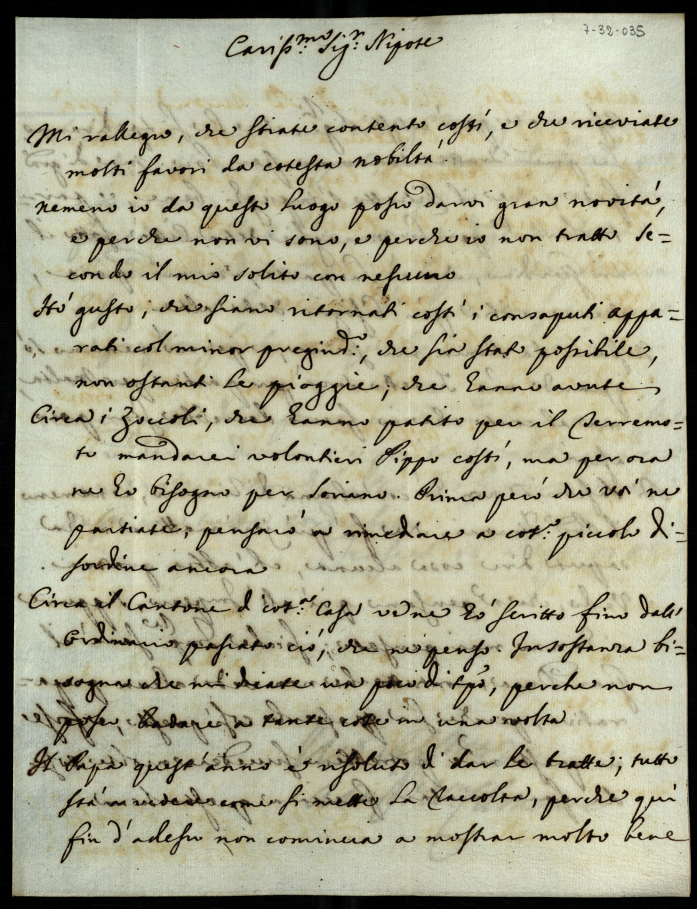 7-32-035
Cariss.mo Sig.r Nipote
Mi rallegro, che stiate contento costì, e che riceviate
molti favori da cotesta nobiltà.
Nemeno io da questo luogo posso darvi gran novità,
e perche non vi sono, e perche io non tratto se=
condo il mio solito con nessuno
Hò gusto, che siano ritornati costì i consaputi appa=
rati col minor pregiud.o, che sia stato possibile,
non ostanti le pioggie, che hanno avute
Circa i Zoccoli, che hanno patito per il Terremo=
to mandarei volontieri Pippo costì, ma per ora
ne hò bisogno per Soriano. Prima però che voi ne
partiate, pensarò a rimediare a cot.o piccolo di=
sordine ancora
Circa il Cantone di cot.a Casa ve ne hò scritto fino dall'
Ordinario passato ciò, che ne penso. Insostanza bi=
sogna che mi diate un poco di tpò, perche non
posso, badare a tante cose in una volta
Il Papa quest'anno è risoluto di dar le tratte; tutto
stà in vedere come si mette la Raccolta, perche quì
fin d'adesso non comincia a mostrar molto bene